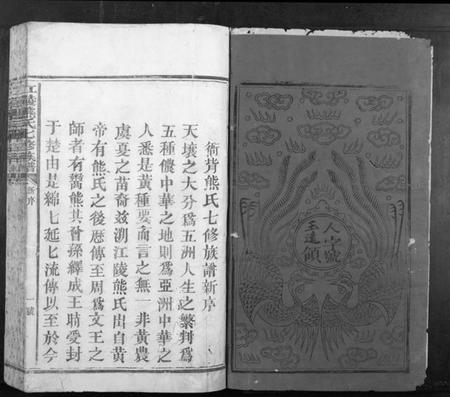 人字號
玉達領
衙背熊氏七修族譜新序
天壤之大分為五洲人生之繁判為
五種儂中華之地則為亞洲中華之
人悉是黃種要而言之無一非黃農
虞夏之苗裔茲溯江陵熊氏出自黃
帝有熊氏之後歷傳至周為文王之
師者有鬻熊其曾孫繹成王時受封
于楚由是綿匕延匕流傳以至於今
江陵熊氏七修族譜
新序
一號